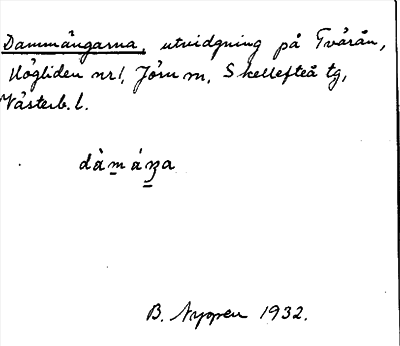 Dammängarna, utvidgning på Tvärån,
Högliden nr 1, Jörn sn, Skellefteå tg,
Västerb. l.
dàm̲áŋ̲a
B. Nyppen 1932.